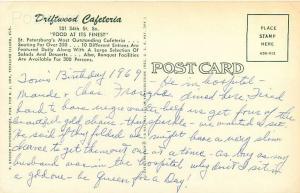 Driftwood Cafeteria
151 34th St. So.
"FOOD AT ITS FINEST"
St. Petersburg's Most Outstanding Cafeteria . . .
Seating For Over 300 . . . 10 Different Entrees Are
Featured Daily Along With A Large Selection Of
Salads And Desserts . . . Also, Banquet Facilities
Are Available For 300 Persons.
PLACE
STAMP
HERE
POST CARD
Tom's Birthday 1969 He in hospital-
Maude & Chas dined here. Tried
hard to have negro waiter help us get four of the
gold chairs - that - we in a set
He said if they folded up - might have a very slim
chance to get them out one at a time - as long as my
husband was in the hospital why didn't I sit in
a gold one - be Queen for a Day!